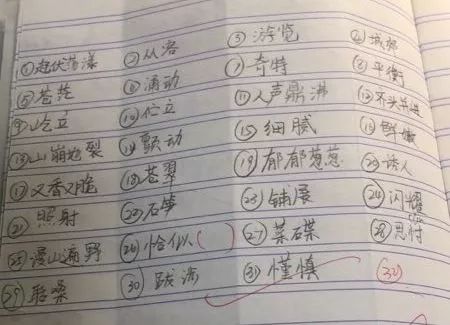 ①起伏荡漾 ②从容 ③游览 ④城郊
⑤苍茫 ⑥涌动 ⑦奇特 ⑧平衡
⑨屹立 ⑩伫立 ⑪人声鼎沸 ⑫齐头并进
⑬山崩地裂 ⑭颤动 ⑮细腻 ⑯鲜嫩
⑰又香又脆 ⑱苍翠 ⑲郁郁葱葱 ⑳诱人
㉑照射 ㉒石笋 ㉓铺展 ㉔闪耀
㉕漫山遍野 ㉖恰似( ) ㉗菜碟 ㉘思忖
㉙ ㉚跋涉 ㉛谨慎 ㉜